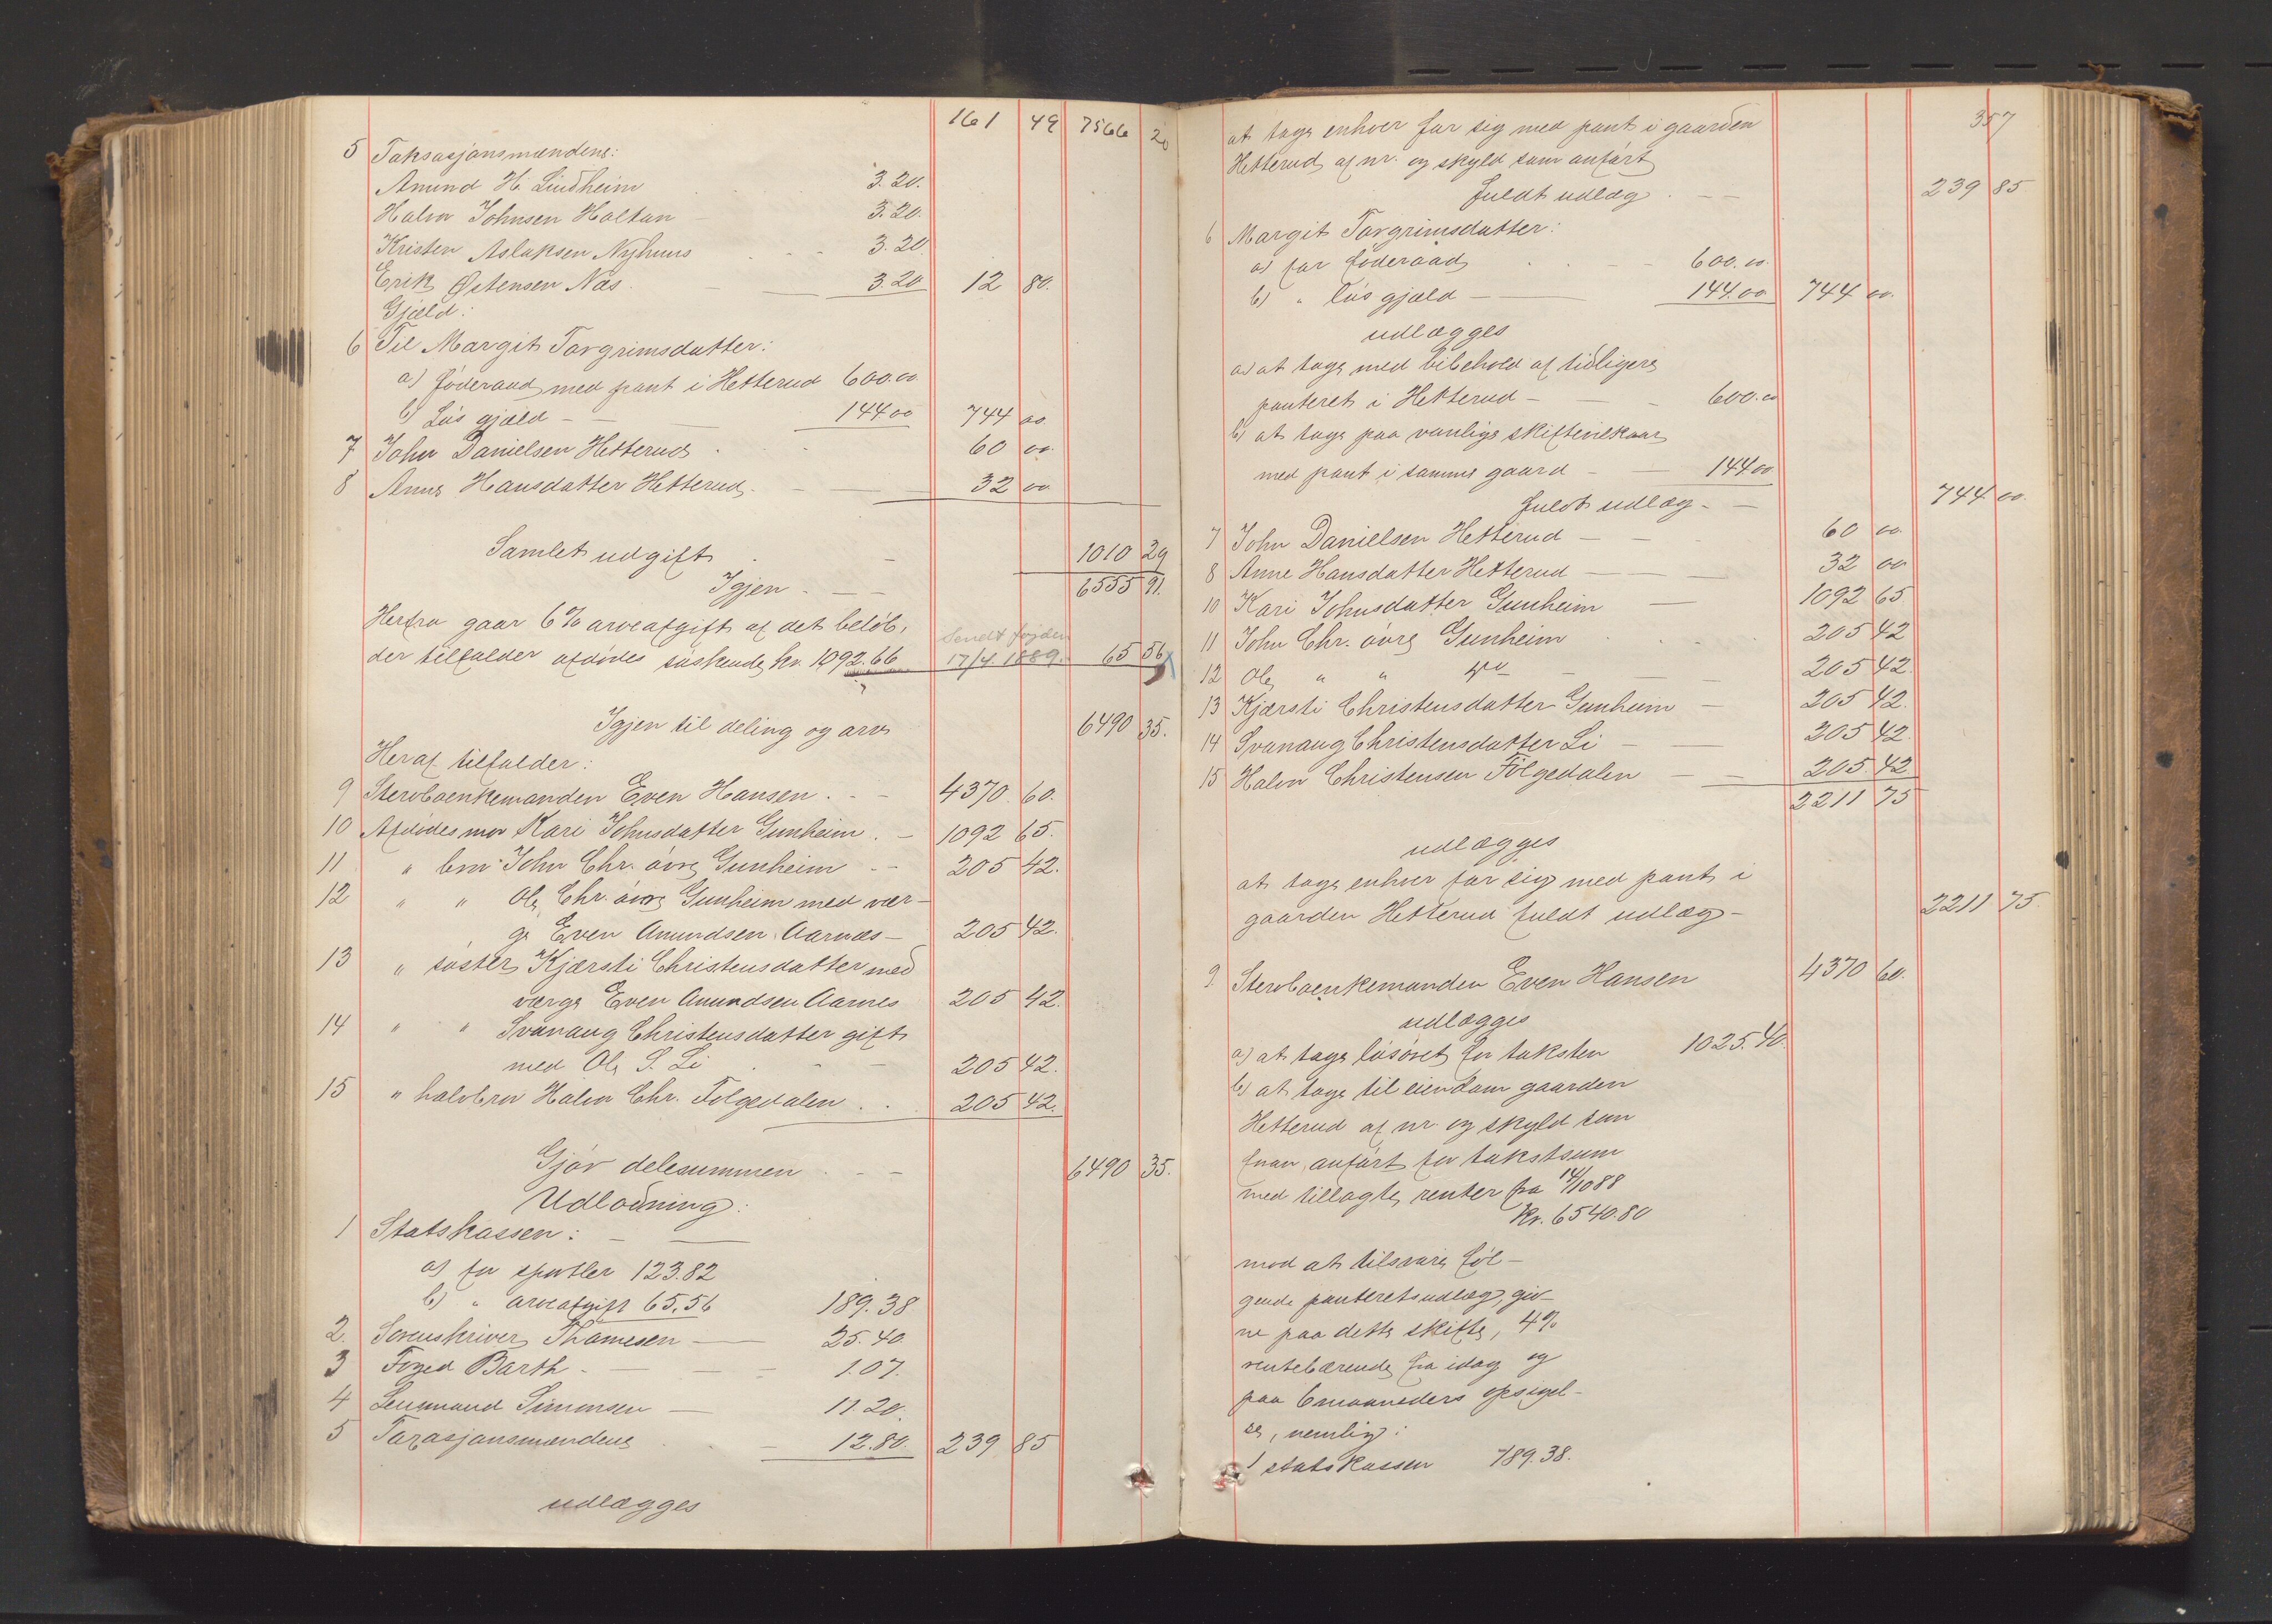 161 49 7566 20
5 Taksasjonsmændene:
Amund H. Lindheim - 3.20.
Halvor Johnsen Holtan - 3.20.
Kristen Aslaksen Nyhuus - 3.20
Erik Østensen Næs. - 3.20 12 80.
Gjæld:
6 Til Margit Torgrimsdatter:
a) föderaad med pant i Hetterud 600.00
b) Lös gjæld - 144.00 744 00
7 John Danielsen Hetterud . 60 00.
8 Anne Hansdatter Hetterud. - 32 00
Samlet udgift . - 1010 29
Igjen . - 6555 91.
Herfra gaar 6% arveafgift af det belöb,
Sendt fogden
der tilfalder afdödes söskende kr. 1092.66 17/4. 1889. 65 56
Igjen til deling og arv 6490 35.
Heraf tilfalder:
9 Sterboenkemanden Even Hansen . - 4370 60.
10 Afdödes mor Kari Johnsdatter Gunheim . - 1092 65.
11 " bror John Chr. övre Gunheim - 205 42.
12 " " Ole Chr. övre Gunheim med vær-
ge Even Amundsen Aarnæs - 205 42.
13 " söster Kjærsti Christensdatter med
værge Even Amundsen Aarnes 205 42.
14 " " Svanaug Christensdatter gift
med Ole S. Li . - 205 42.
15 " halvbror Halvor Chr. Folgedalen . . 205 42.
Gjör delesummen . - 6490 35.
Udlodning:
1 Statskassen: -
a) for sportler 123.82
b) " arveafgift 65.56 189.38
2. Sorenskriver Thomesen - 25.40.
3 Foged Barth - 1.07.
4 Lensmand Simonsen - 11.20.
5 Taxasjonsmændene - 12.80. 239 85
udlægges
357
at tage enhver for sig med pant i gaarden
Hetterud af nr. og skyld som anfört
fuldt udlæg . - 239 85
6 Margit Torgrimsdatter:
a) for föderaad - 600.00.
b) " lös gjæld - 144.00 744 00.
udlægges
a) at tage med bibehold af tidligere
panteret i Hetterud - 600.00
b) at tage paa vanlige skiftevilkaar
med pant i samme gaard - 144.00
fuldt udlæg - 744 00.
7 John Danielsen Hetterud - 60 00.
8 Anne Hansdatter Hetterud - 32 00
10 Kari Johnsdatter Gunheim - 1092 65
11 John Chr. övre Gunheim . . 205 42
12 Ole " " do - 205 42.
13 Kjærsti Christensdatter Gunheim - 205 42.
14 Svanaug Christensdatter Li - 205 42.
15 Halvor Christensen Folgedalen - 205 42
2211 75
udlægges
at tage enhver for sig med pant i
gaarden Hetterud fuldt udlæg - 2211 75.
9. Sterboenkemanden Even Hansen 4370 60.
udlægges
a) at tage lösöret for taksten 1025.40.
b) at tage til eiendom gaarden
Hetterud af nr. og skyld som
foran anfört for takstsum
med tillagte renter fra 14/10 88
Kr. 6540.80
mod at tilsvare föl-
gende panteretsudlæg, giv-
ne paa dette skifte, 4%
rentebærende fra idag og
paa 6 maaneders opsigel-
se, nemlig:
1 statskassen 189.38.